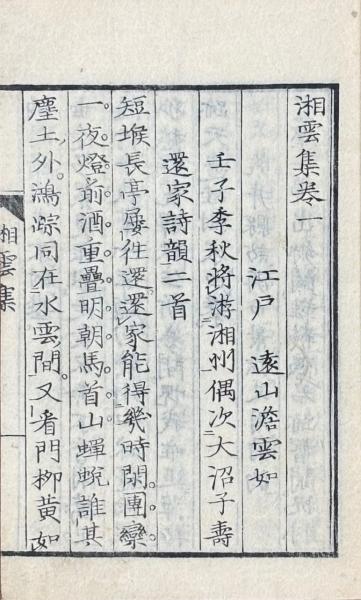 湘雲集卷一
江戸　遠山澹雲如
壬子季秋將游湘州偶次大沼子壽
還家詩韻二首
短堠長亭屢往還還家能得幾時閑團欒
一夜燈前酒重疊明朝馬首山蟬蛻誰其
塵土外鴻踪同在水雲間又看門柳黄如
湘雲集